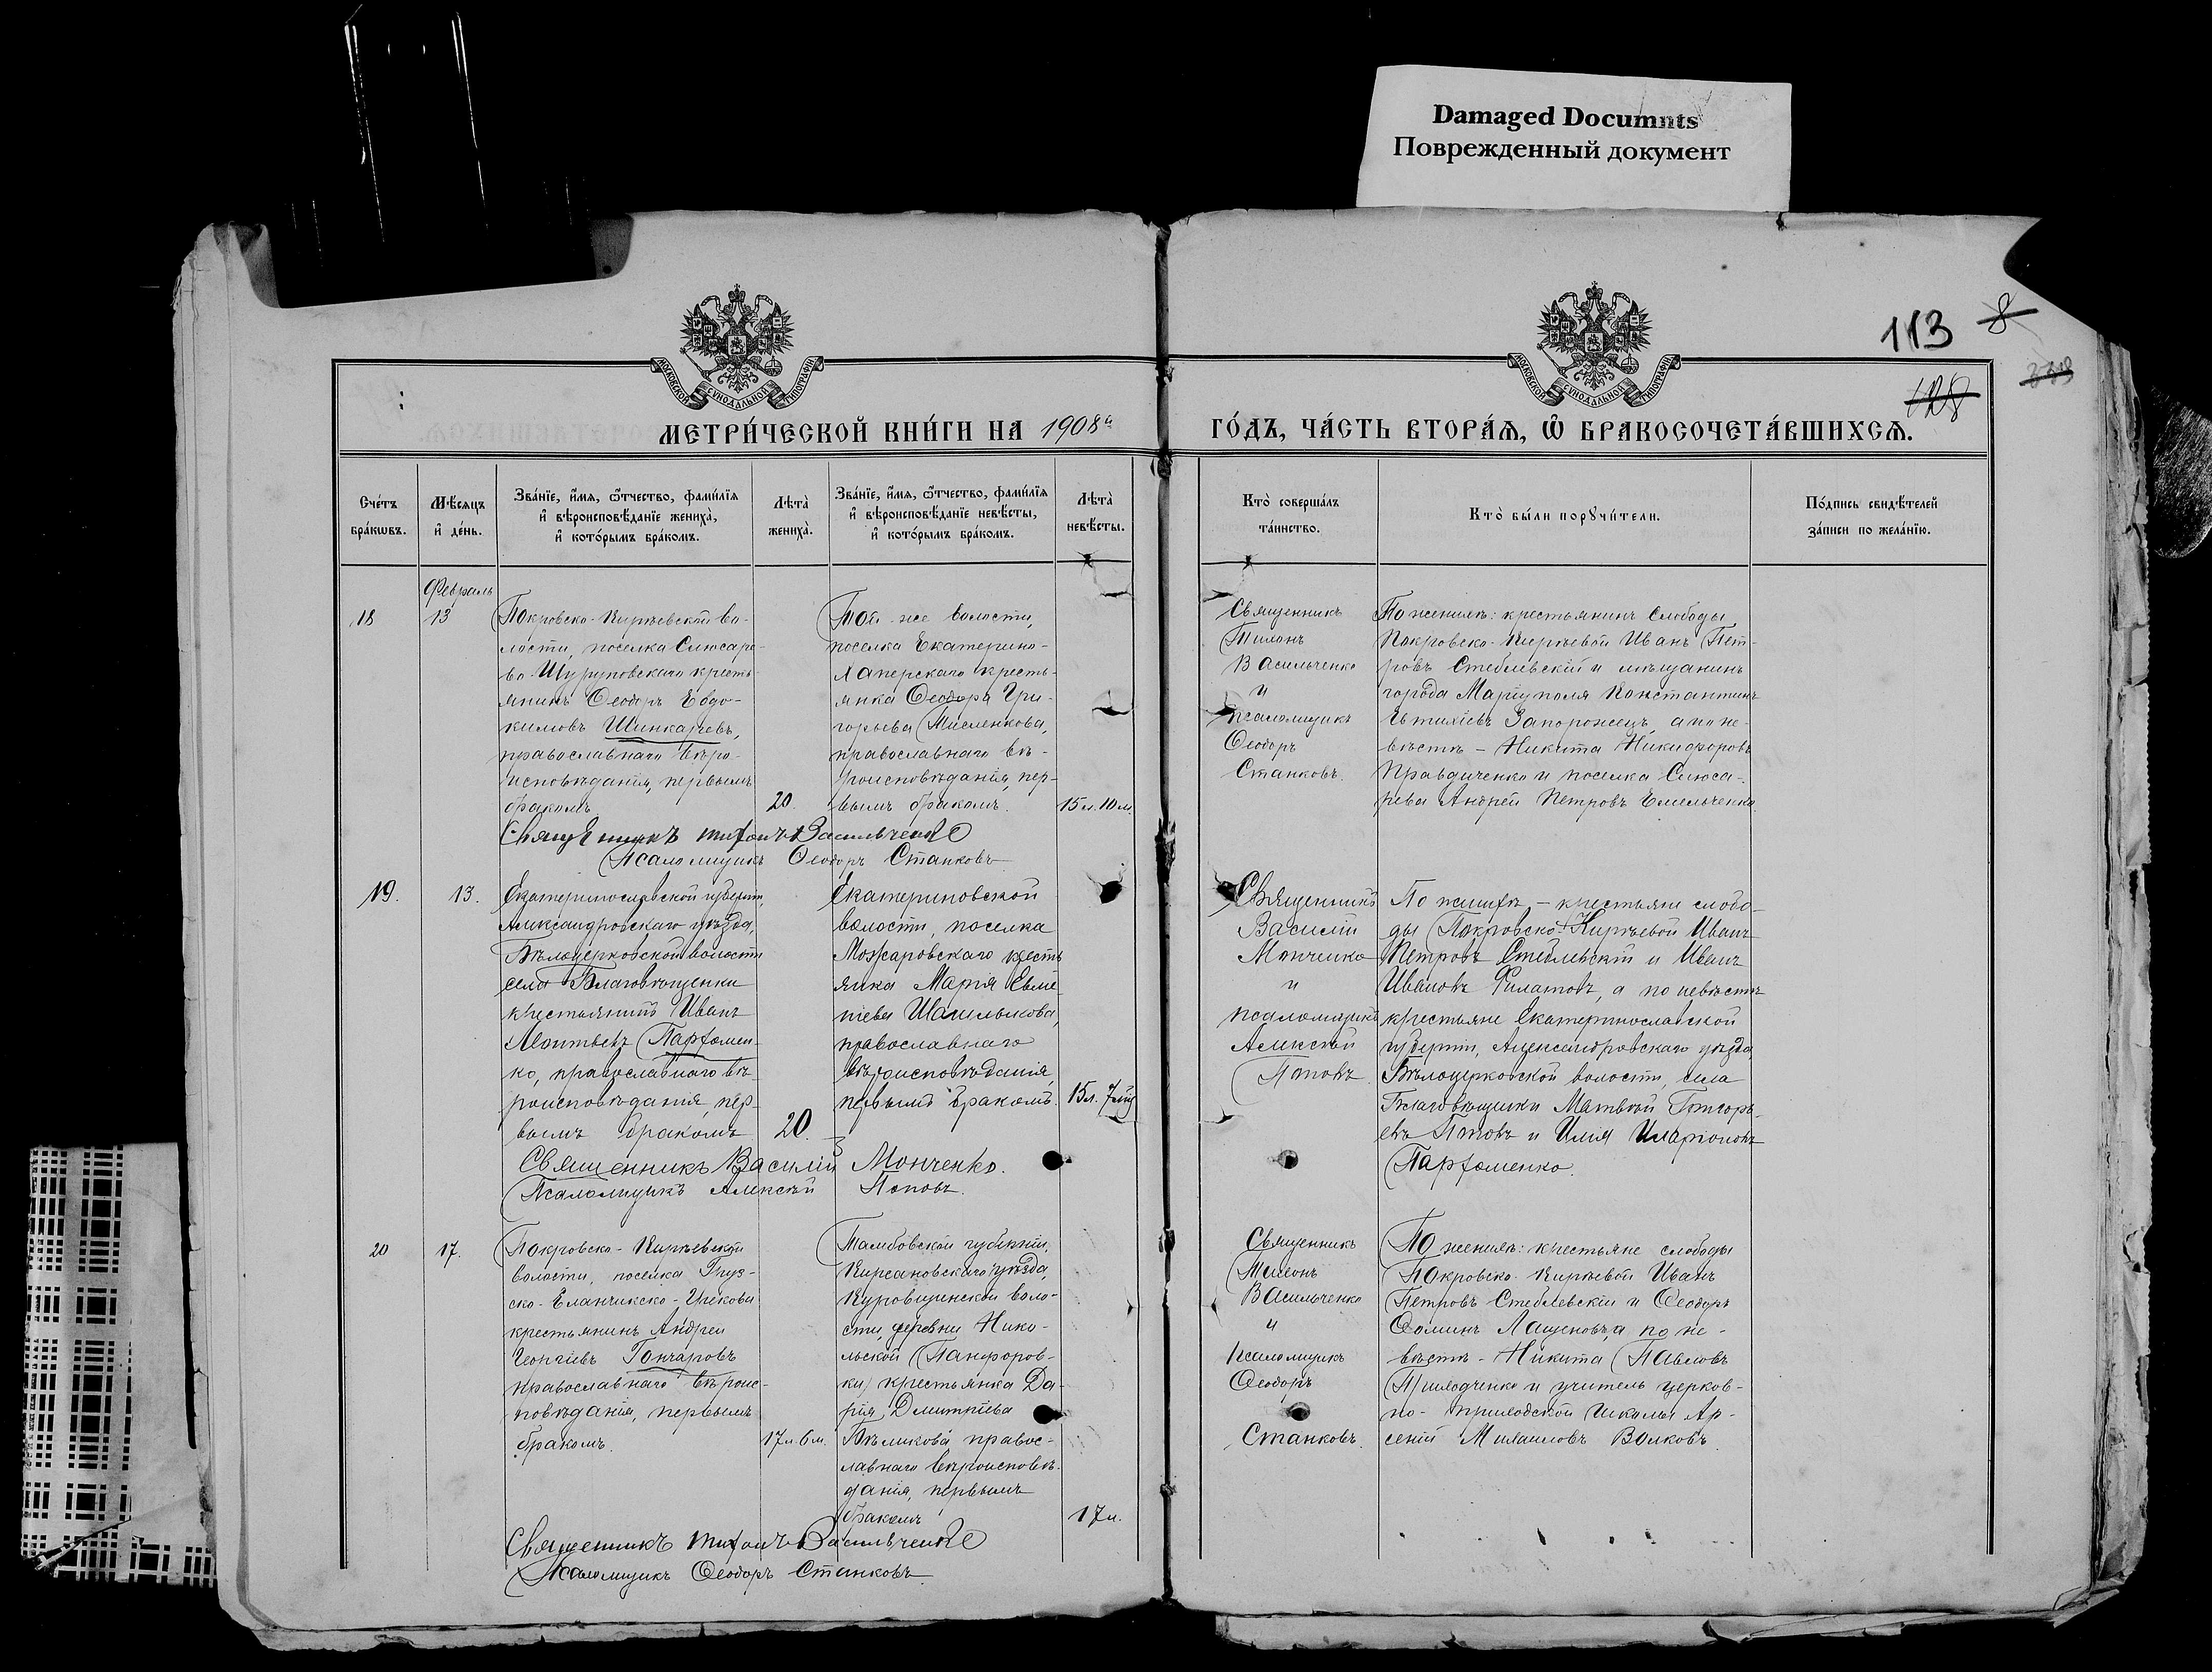 Damaged Documnts
Поврежденный документ
113
8
128
МОСКОВСКОЙ СѴНОДАЛЬНОЙ ТИПОГРАФІИ
МОСКОВСКОЙ СѴНОДАЛЬНОЙ ТИПОГРАФІИ
МЕТРИ́ЧЕСКОЙ КНИ́ГИ НА 1908й
ГО́ДЪ, ЧА́СТЬ ВТОРА́Ѧ, Ѽ БРАКОСОЧЕТА́ВШИХСѦ.
Сче́тъ
бра́кωвъ.
Мѣ́сяцъ
и҆ де́нь.
Зва́нїе, и҆́мѧ, ѻ҆́тчество, фами́лїѧ
и҆ вѣроисповѣ́данїе жениха̀,
и҆ кото́рымъ бра́комъ.
Лѣта̀
жениха̀.
Зва́нїе, и҆́мѧ, ѻ҆́тчество, фами́лїѧ
и҆ вѣроисповѣ́данїе невѣ́сты,
и҆ кото́рымъ бра́комъ.
Лѣта̀
невѣ́сты.
Кто̀ соверша́лъ
та́инство.
Кто̀ бы́ли порꙋчи́тели.
По́дпись свидѣ́телей
за́писи по жела́нїю.
Февраль
18
13
Покровско-Кирѣевской во-
лости, поселка Слюсаре-
во-Шуруповскаго кресть-
янинъ Ѳеодоръ Евдо-
кимовъ Шинкаревъ,
православнаго вѣро-
исповѣданія, первымъ
бракомъ
20.
Той-же волости,
поселка Екатерино-
Хаперскаго кресть-
янка Ѳеодора Гри-
горьева Мисленкова,
православнаго вѣ-
роисповѣданія, пер-
вымъ бракомъ.
15 л. 10 м.
Священникъ
Тихонъ
Васильченко
и
псаломщикъ
Ѳеодоръ
Станковъ.
По женихѣ: крестьянинъ слободы
Покровско-Кирѣевой Иванъ Пет-
ровъ Стеблевскій и мѣщанинъ
города Маріуполя Константинъ
Евтихіевъ Запорожецъ, а по не-
вѣстѣ - Никита Никифоровъ
Правдиченко и поселка Слюса-
рева Андрей Петровъ Емельченко
Священникъ Тихонъ Васильченко
Псаломщикъ Ѳеодоръ Станковъ
19.
13.
Екатеринославской губерніи,
Александровскаго уѣзда,
Бѣлоцерковской волости
села Благовѣщенки
крестьянинъ Иванъ
Леонтьевъ Парѳомен-
ко, православнаго вѣ-
роисповѣданія, пер-
вымъ бракомъ
20.
Екатериновской
волости, поселка
Можаровскаго кресть
янка Марія Евме-
ніева Шапилькова,
православнаго
вѣроисповѣданія,
первымъ бракомъ.
15 л. 7 мц
Священникъ
Василій
Монченко
и
псаломщикъ
Алексѣй
Поповъ
По женихѣ, - крестьяне слобо-
ды Покровско-Кирѣевой Иванъ
Петровъ Стеблевскій и Иванъ
Ивановъ Филатовъ, а по невѣстѣ
крестьяне Екатеринославской
губерніи, Александровскаго уѣзда,
Бѣлоцерковской волости, села
Благовѣщенки Матвѣй Григорь-
евъ Поповъ и Илія Иларіоновъ
Парѳоменко.
Священникъ Василій Монченко.
Псаломщикъ Алексѣй Поповъ.
20
17.
Покровско-Кирѣевской
волости, поселка Груз-
ско-Еланчикско-Грекова
крестьянинъ Андрей
Георгіевъ Гончаровъ
православнаго вѣроис-
повѣданія, первымъ
бракомъ.
17 л. 6 м.
Тамбовской губерніи,
Кирсановскаго уѣзда,
Куровщинской воло-
сти, деревни Нико-
льской (Панфоров-
ки) крестьянка Да-
рія Дмитріева
Бѣликова правос-
лавнаго вѣроисповѣ-
данія, первымъ
бракомъ
17 л.
Священникъ
Тихонъ
Васильченко
и
псаломщикъ
Ѳеодоръ
Станковъ.
По женихѣ: крестьяне слободы
Покровско-Кирѣевой Иванъ
Петровъ Стеблевскій и Ѳеодоръ
Ѳоминъ Лащеновъ, а по не-
вѣстѣ - Никита Павловъ
Приходченко и учитель церков-
но-приходской школы Ар-
сеній Михаиловъ Волковъ.
Священникъ Тихонъ Васильченко
Псаломщикъ Ѳеодоръ Станковъ.